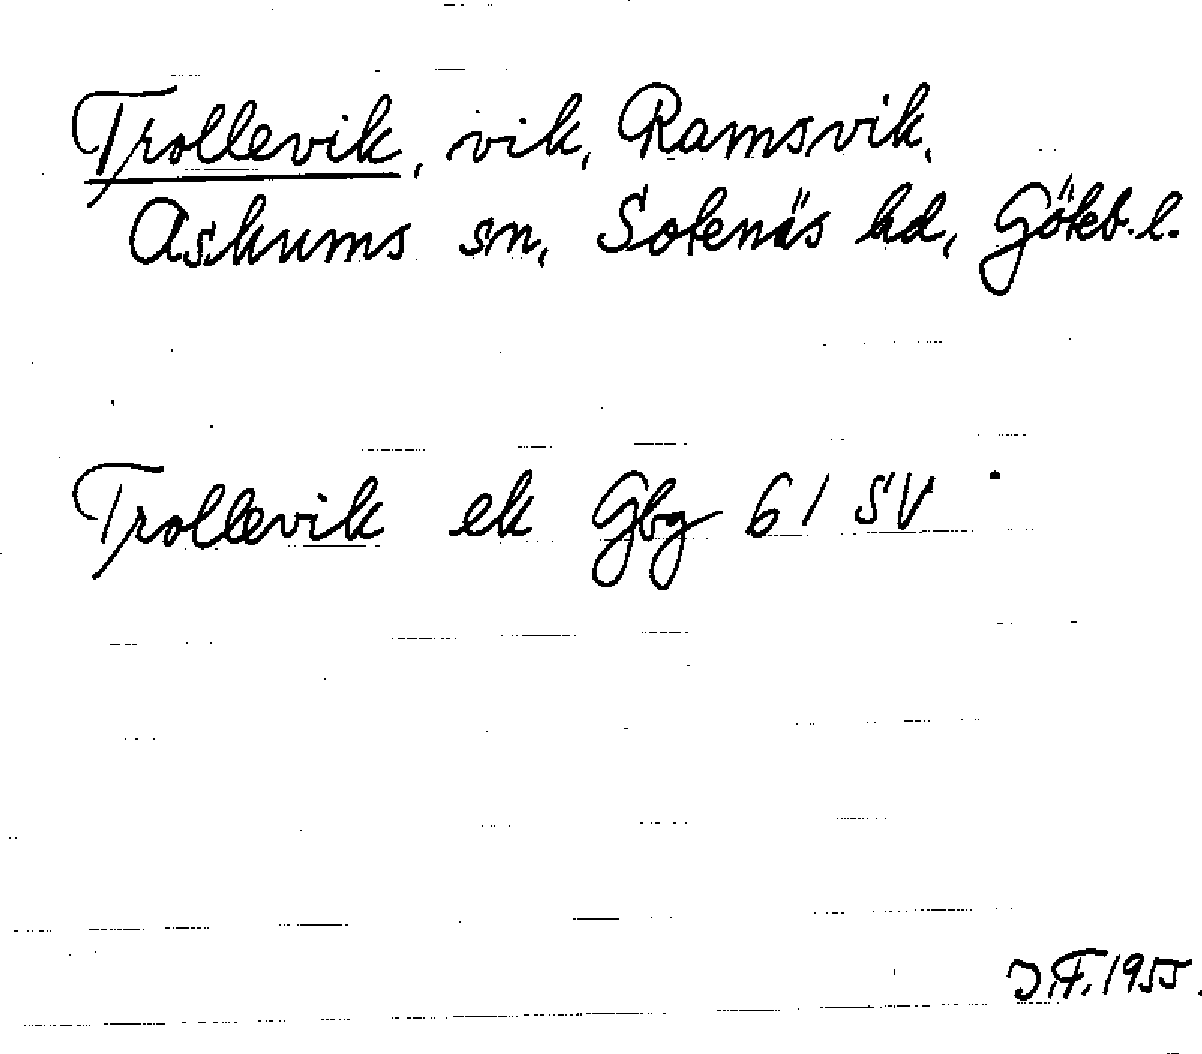 Trollevik, vik, Ramsvik,
Askums sn, Sotenäs hd, Göteb. l.
Trollevik ek Gbg 61 SV
J.F. 1955.